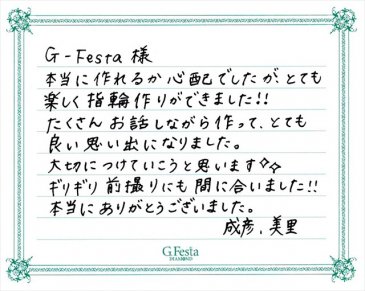 G-Festa 様
本当に作れるか心配でしたが、とても
楽しく指輪作りができました!!
たくさんお話しながら作って、とても
良い思い出になりました。
大切につけていこうと思います✧✧
ギリギリ前撮りにも間に合いました!!
本当にありがとうございました。
成彦、美里
G.Festa
DIAMOND